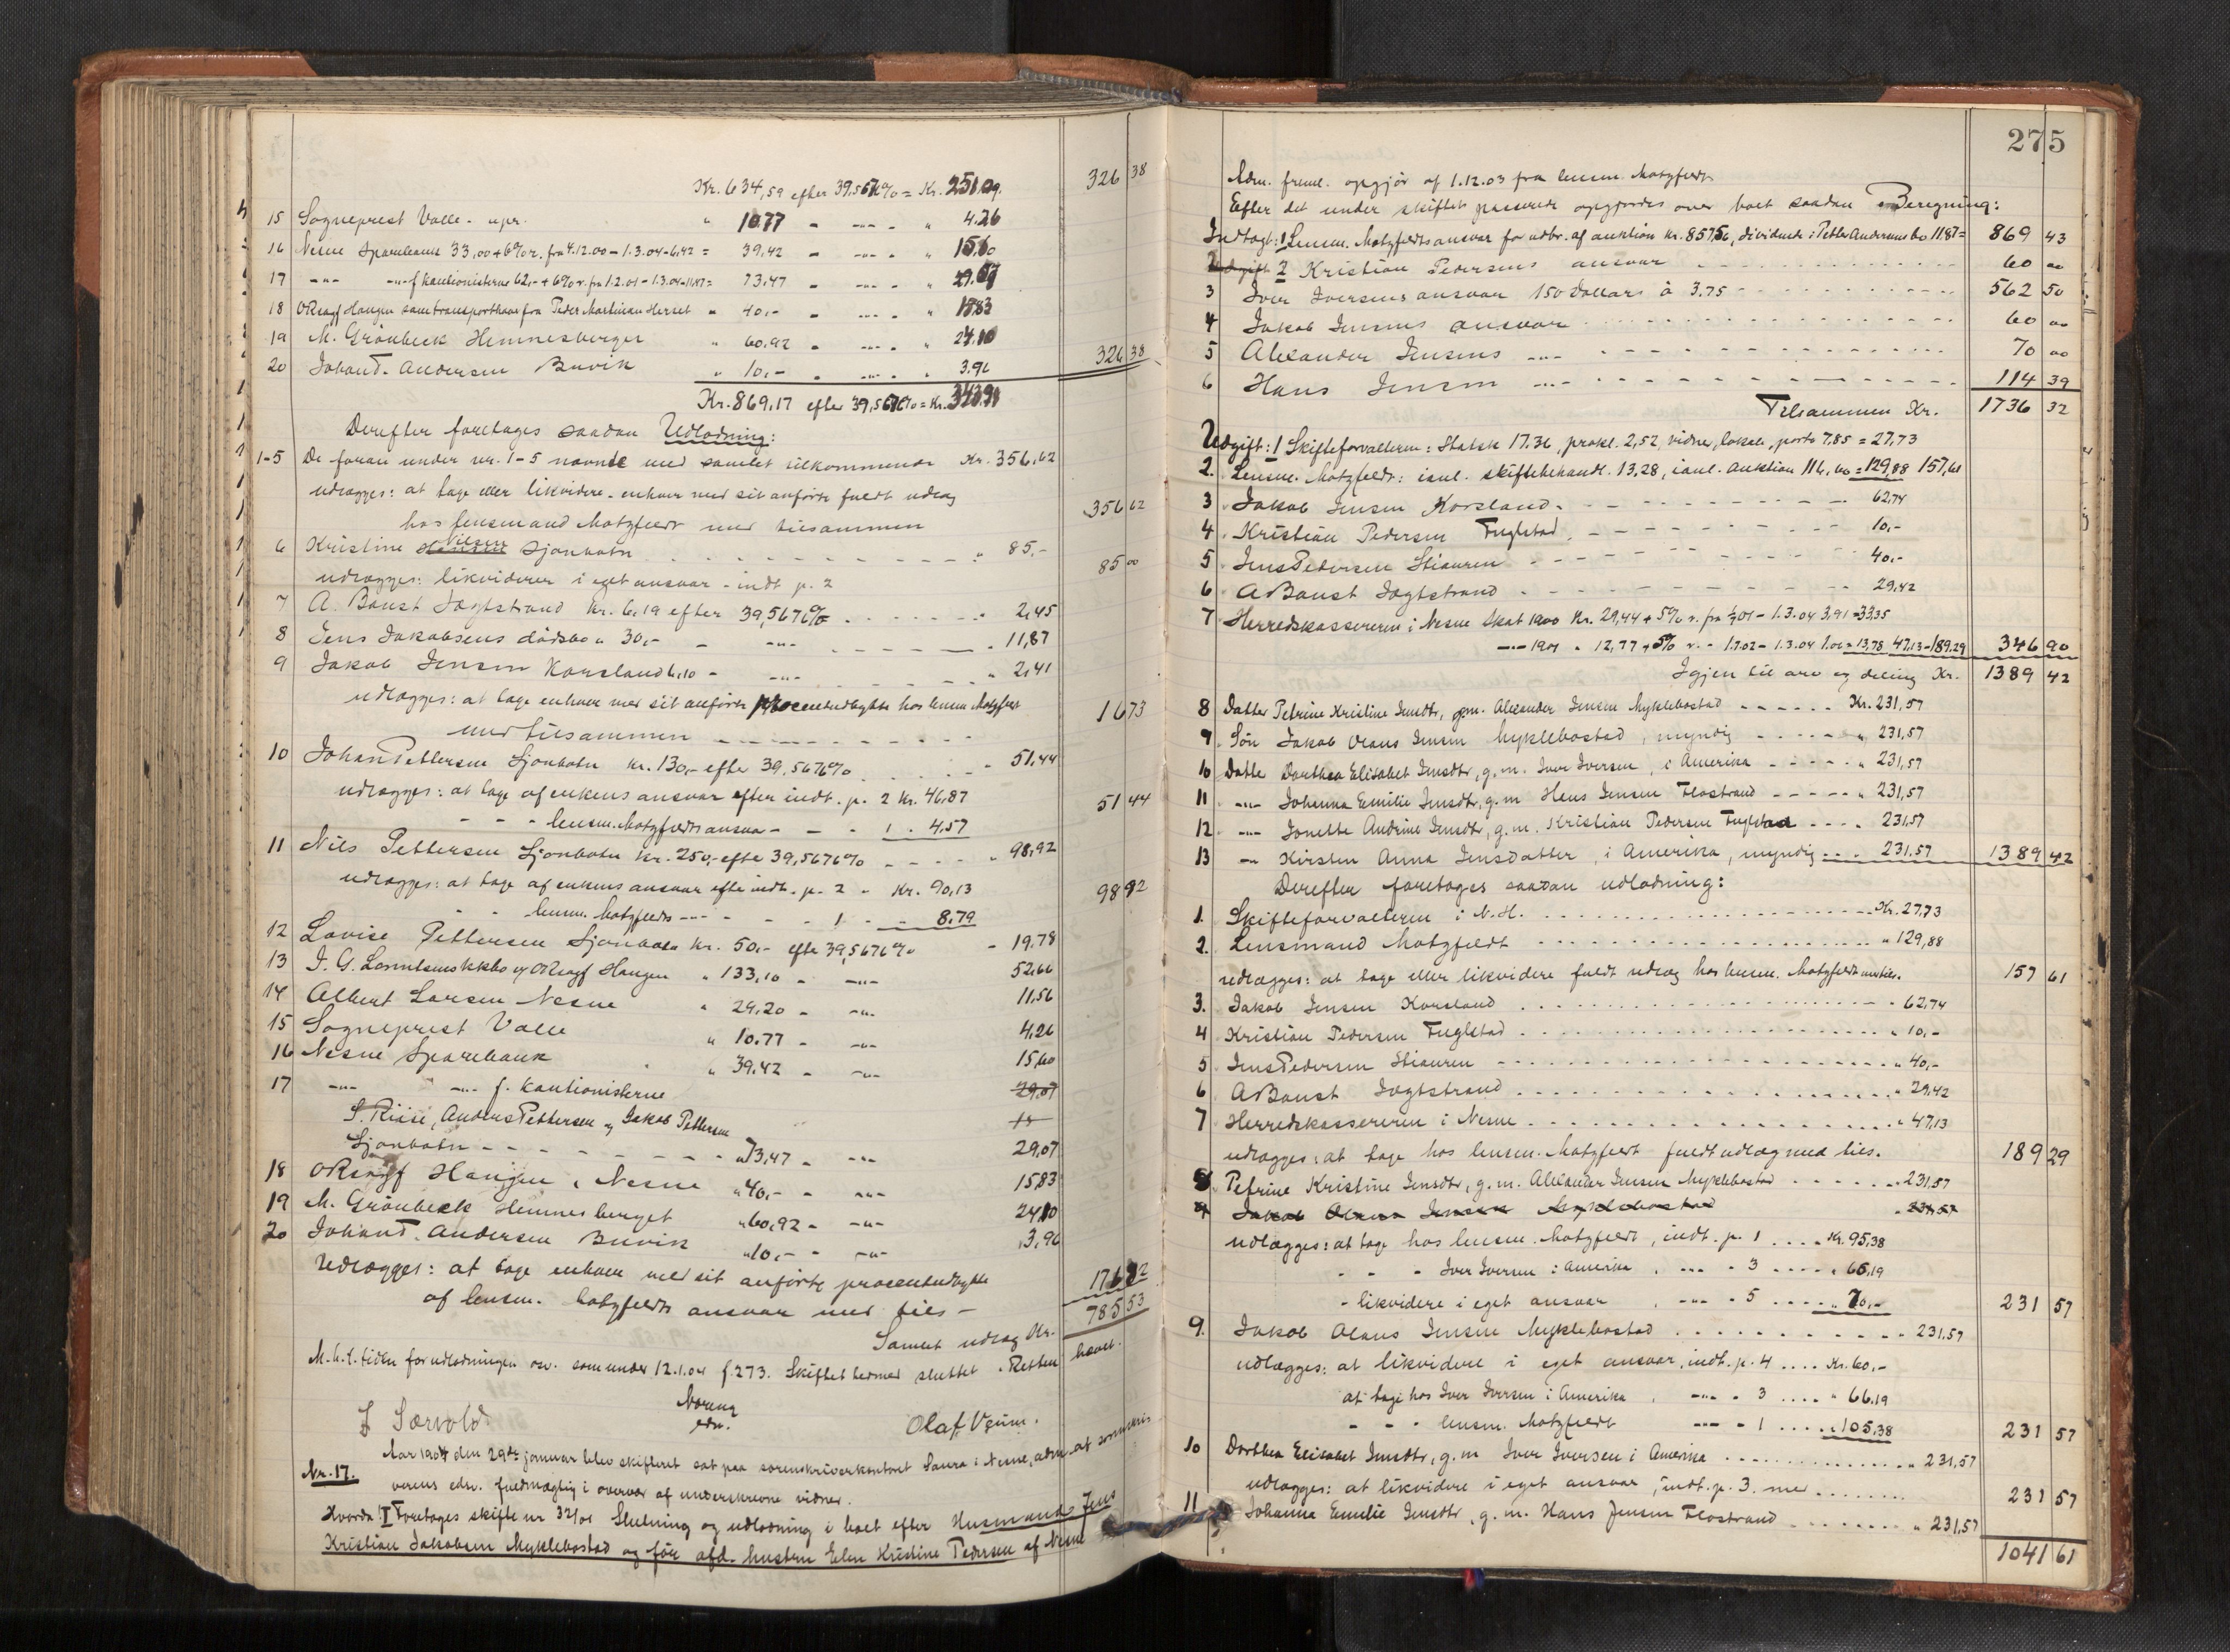 Kr. 634,59 efter 39,5676% = Kr. 251.09. 326 38
15 Sogneprest Valle - upr. " 10.77 - -"- - " 4.26
16 Nesne Sparebank 33,00 + 6% r. fra 4.12.00 - 1.3.04 - 6,42 = 39,42 - -"- - " 15,60
17 -"- -"- f. kautionisterne 62,- + 6% r. fra 1.2.01 - 1.3.04 - 11,47 = 73,47 - -"- - " 29.07
18 O Raagf Haugen som transporthaver fra Peder Martinian Herset " 40,- - -"- - " 15.83
19 M. Grönbeck Hemnesberget " 60,92 - -"- - " 24.10
20 Johan T. Andersen Buvik " 10,- - -"- - " 3.96 326 38
Kr. 869,17 efter 39,5676% = Kr. 343.91
Derefter foretages saadan Udlodning:
1-5 De foran under nr. 1-5 navnte med samlet tilkommende Kr. 356,62
udlægges: at tage eller likvidere enhver med sit anförte fuldt udlæg
hos lensmand Motzfeldt med tilsammen 356 62
6 Kristine Nilsen Sjonbotn " 85,-
udlægges: likviderer i eget ansvar - indt. p. 2 85 00
7 A. Banst Jagtstrand Kr. 6,19 efter 39,5676% " 2,45
8 Jens Jakobsens dödsbo " 30,- - -"- " 11,87
9 Jakob Jensen Korsland 6,10 - -"- " 2,41
udlægges: at tage enhver med sit anförte procentudbytte hos lensm. Motzfeldt
med tilsammen 16 73
10 Johan Pettersen Sjonbotn Kr. 130,- efter 39,5676% " 51,44
udlægges: at tage af enkens ansvar efter indt. p. 2 Kr. 46,87
- - - lensm. Motzfeldts ansvar - - - 1 - 4,57 51 44
11 Nils Pettersen Sjonbotn Kr. 250,- efter 39,5676% " 98,92
udlægges: at tage af enkens ansvar efter indt. p. 2 - Kr. 90,13
- - lensm. Motzfeldts -"- - - - 1 - - 8.79 98 92
12 Lovise Pettersen Sjonbotn Kr. 50,- efter 39,5676% - 19,78
13 J. G. kkbo v/ O Raagf Haugen " 133,10 - -"- 52,66
14 Albert Larsen Nesne " 29,20 - -"- 11,56
15 Sogneprest Valle " 10.77 - -"- 4,26
16 Nesne Sparebank " 39.42 - -"- 15,60
17 -"- -"- f. kautionisterne 29,07
S. Riise, Anders Pettersen og Jakob Pettersen
Sjonbotn - - - " 73,47 - -"- 29,07
18 O Raagf Haugen, Nesne " 40,- - -"- 15,83
19 M. Grönbeck Hemnesberget " 60,92 - -"- 24,10
20 Johan T. Andersen Buvik " 10,- - -"- 3,96
Udlægges: at tage enhver med sit anförte procentudbytte
af lensm. Motzfeldts ansvar med tils - 176 82
Samlet udlæg Kr. 785 53
M. h. t. tiden for udlodningen osv. som under 12.1.04 f. 273. Skiftet hermed sluttet. Retten hævet.
Noreng
edsv.
J Sörvold. Olaf Vgum.
Nr. 17. Aar 1904 den 29de januar blev skifteret sat paa sorenskriverkontoret Saura i Nesne, adm. af sorenskri-
verens edsv. fuldmægtig i overvær af underskrevne vidner.
Hvorda: I Foretoges skifte nr 32/01 Slutning og udlodning i boet efter Husmand Jens
Kristian Jakobsen Myklebostad og för afd. hustru Elen Kristine Pedersen af Nesne
275
Adm. freml. opgjör af 1.12.03 fra lensm. Motzfeldt.
Efter det under skiftet passerede opgjordes over boet saadan Beregning:
Indtægt: 1 Lensm. Motzfeldts ansvar for udbr. af auktion Kr. 857,56, dividende i Petter Andersens bo 11.87 = 869 43
2 Kristian Pedersens ansvar 60 00
3 Iver Iversens ansvar 150 Dollars à 3.75 562 50
4 Jakob Jensens ansvar 60 00
5 Alexander Jensens -"- 70 00
6 Hans Jensen -"- 114 39
Tilsammen Kr. 1736 32
Udgift: 1 Skifteforvalteren: Statsk 17.36, prokl. 2,52, vidner, lokale, porto 7,85 = 27,73
2. Lensm. Motzfeldt: isal. skiftebehandl. 13,28, isal. auktion 116,60 = 129,88 157,61
3 Jakob Jensen Korsland. 62,74
4 Kristian Pedersen Fuglstad 10,-
5 Jens Pedersen Stiauren 40,-
6 A Banst Jagtstrand 29,42
7 Herredskassereren i Nesne Skat 1900 Kr. 29,44 + 5% r. fra 1/7 01 - 1.3.04 3,91 = 33,35
-"- 1901 " 12,77 + 5% r. - 1.7.02 - 1.3.04 1.01 = 13,78 47,13 - 189.29 346 90
Igjen til arv og deling Kr. 1389 42
8 Datter Petrine Kristine Jensdtr, g.m. Alexander Jensen Myklebostad Kr. 231,57
9 Sön Jakob Olaus Jensen Myklebostad, myndig " 231,57
10 Datter Dorthea Elisabet Jensdtr, g.m. Iver Iversen, i Amerika " 231,57
11 -"- Johanna Emilie Jensdtr, g.m. Hans Jensen Flostrand " 231,57
12 -"- Jonette Andrine Jensdtr, g.m. Kristian Pedersen Fuglstad 231,57
13 -"- Kirsten Anna Jensdatter, i Amerika, myndig 231,57 1389 42
Derefter foretages saadan udlodning:
1. Skifteforvalteren i N. H. Kr. 27,73
2. Lensmand Motzfeldt " 129,88
udlægges: at tage eller likvidere fuldt udlæg hos lensm. Motzfeldt med tils. 157 61
3. Jakob Jensen Korsland " 62,74
4 Kristian Pedersen Fuglstad " 10,-
5 Jens Pedersen Stiauren " 40,-
6 A Banst Jagtstrand " 29,42
7 Herredskassereren i Nesne " 47,13
udlægges: at tage hos lensm. Motzfeldt fuldt udlæg med tils. 189 29
8 Petrine Kristine Jensdtr, g.m. Alexander Jensen Myklebostad 231,57
9 Jakob Olaus Jensen Myklebostad " 231,57
udlægges: at tage hos lensm. Motzfeldt, indt. p. 1 Kr. 95,38
- - - Iver Iversen i Amerika, -"- - 3 " 66,19
- likvidere i eget ansvar, -"- - 5 " 70,- 231 57
9. Jakob Olaus Jensen Myklebostad 231,57
udlægges: at likvidere i eget ansvar, indt. p. 4 Kr. 60,-
at tage hos Iver Iversen i Amerika, -"- - 3 " 66,19
- - - lensm. Motzfeldt -"- - 1 " 105,38 231 57
10 Dorthea Elisabet Jensdtr, g.m. Iver Iversen i Amerika " 231,57
udlægges: at likvidere i eget ansvar, indt. p. 3. med 231 57
11 Johanna Emilie Jensdtr, g.m. Hans Jensen Flostrand " 231,57
1041 61